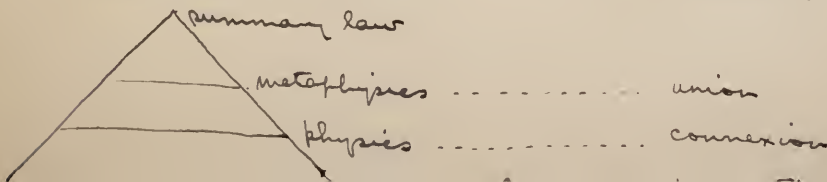 summary law
metaphysics .......... union
physics .......... connexion